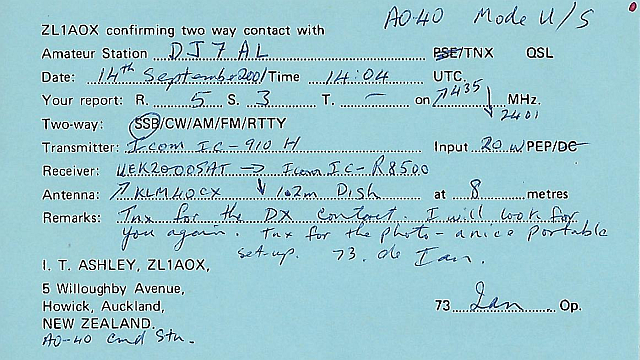 AO-40 Mode U/S
ZL1AOX confirming two way contact with
Amateur Station DJ7AL PSE/TNX QSL
Date: 14th September 2001 Time 14:04 UTC
Your report: R. 5 S. 3 T. – on ↗435 ↓2401 MHz.
Two-way: SSB/CW/AM/FM/RTTY
Transmitter: Icom IC-910 H Input 20 W PEP/DC
Receiver: UEK2000SAT → Icom IC-R8500
Antenna: ↗ KLM40CX ↓ 1.2m Dish at 8 metres
Remarks: Tnx for the DX contact. I will look for
you again. Tnx for the photo - a nice portable
set-up. 73. de Ian.
I. T. ASHLEY, ZL1AOX,
5 Willoughby Avenue,
Howick, Auckland, 73 Ian Op.
NEW ZEALAND.
AO-40 cmd Stn.